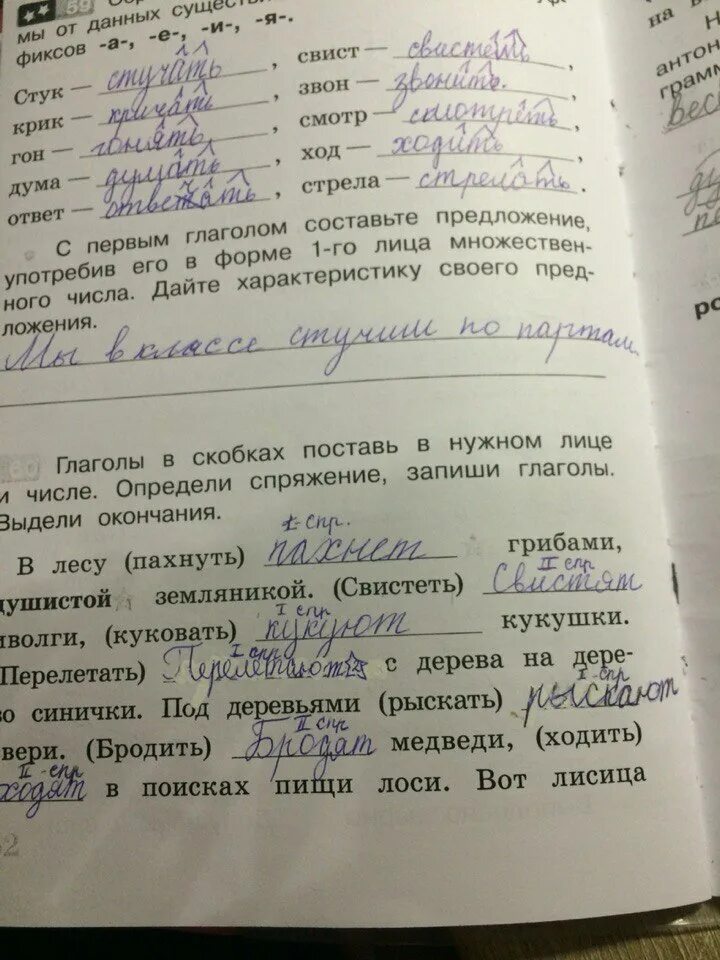 59
мы от данных сущест
фиксов -а-, -е-, -и-, -я-.
Стук — стучать, свист — свистеть,
крик — кричать, звон — звонить.,
гон — гонять, смотр — смотреть,
дума — думать, ход — ходить,
ответ — отвечать, стрела — стрелять.
С первым глаголом составьте предложение,
употребив его в форме 1-го лица множествен-
ного числа. Дайте характеристику своего пред-
ложения.
Мы в классе стучим по партам.
Глаголы в скобках поставь в нужном лице
и числе. Определи спряжение, запиши глаголы.
Выдели окончания.
I-спр.
В лесу (пахнуть) пахнет грибами,
II спр
душистой земляникой. (Свистеть) Свистят
I спр
иволги, (куковать) кукуют кукушки.
I спр
Перелетать) Перелетают с дерева на дере-
I-спр
во синички. Под деревьями (рыскать) рыскают
II спр
вери. (Бродить) Бродят медведи, (ходить)
II-спр
ходят в поисках пищи лоси. Вот лисица
на
антон
грамм
вес
ро